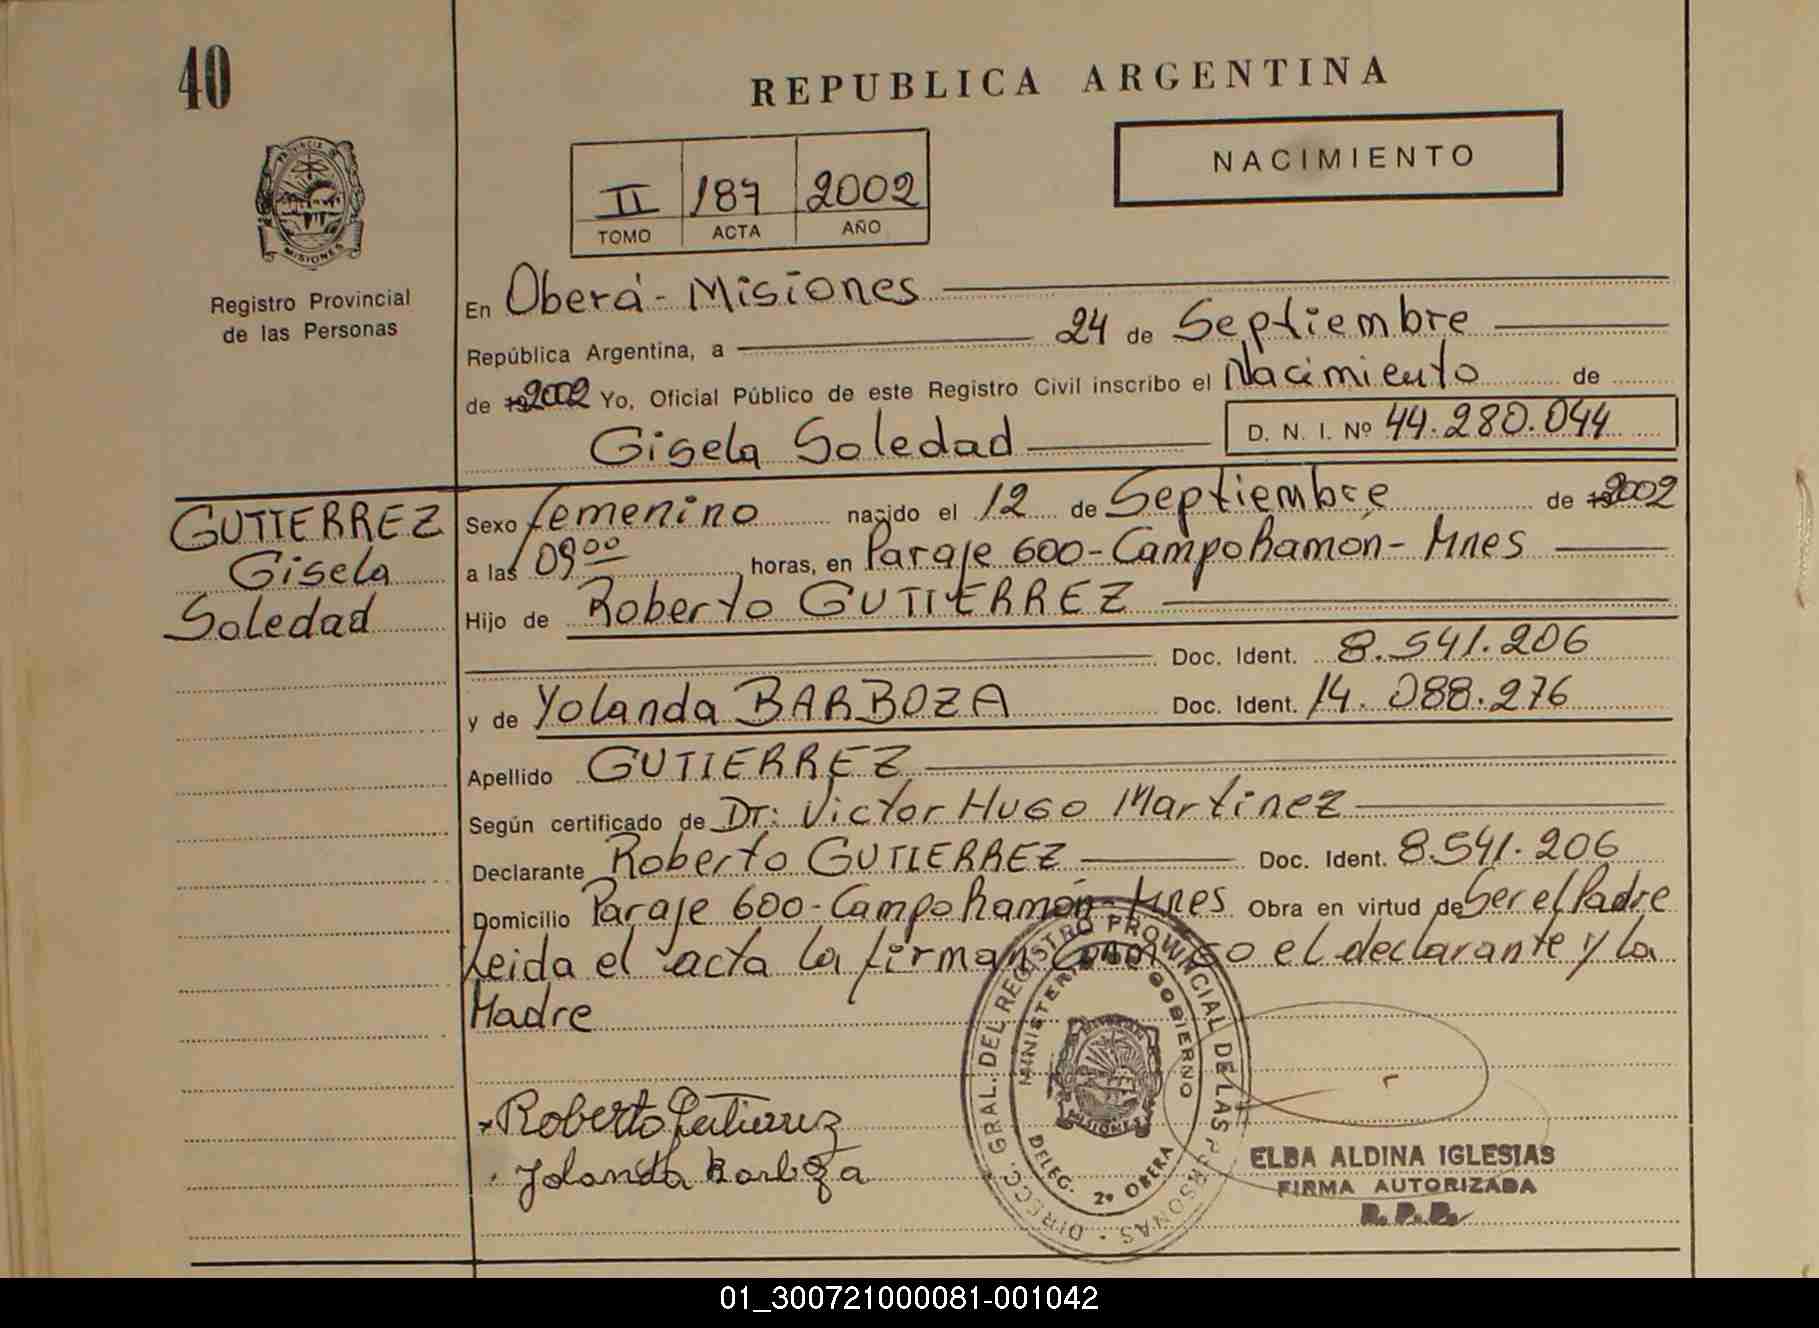 40
REPUBLICA ARGENTINA
NACIMIENTO
II 187 2002
TOMO ACTA AÑO
PROVINCIA DE
MISIONES
Registro Provincial
de las Personas
En Oberá - Misiones
República Argentina, a 24 de Septiembre
de 2002 Yo, Oficial Público de este Registro Civil inscribo el Nacimiento de
Gisela Soledad D. N. I. Nº 44.280.044
GUTIERREZ
Gisela
Soledad
Sexo femenino nacido el 12 de Septiembre de 2002
a las 09 00 horas, en Paraje 600 - Campo Ramón - Mnes
Hijo de Roberto GUTIERREZ
Doc. Ident. 8.541.206
y de Yolanda BARBOZA Doc. Ident. 14.088.276
Apellido GUTIERREZ
Según certificado de Dr: Victor Hugo Martinez
Declarante Roberto GUTIERREZ Doc. Ident. 8.541.206
Domicilio Paraje 600 - Campo Ramón - Mnes Obra en virtud de Ser el Padre
Leida el acta la firman conmigo el declarante y la
Madre
Roberto Gutierrez
Yolanda Barboza
DIRECC. GRAL. DEL REGISTRO PROVINCIAL DE LAS PERSONAS
MINISTERIO DE GOBIERNO
MISIONES
DELEG. 2ª OBERA
ELBA ALDINA IGLESIAS
FIRMA AUTORIZADA
R. P. P.
01_300721000081-001042